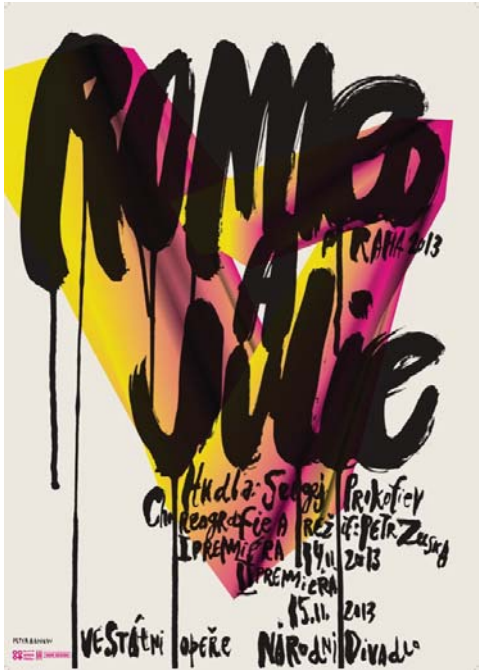 ROMeO
PRAHA 2013
A
Julie
Hudba: Sergej Prokofiev
Choreografie A režie: PETR Zuska
I PREMMIÉRA 14.11. 2013
II PREMMIÉRA
15.11. 2013
VE STÁtNí opeře NÁRodNí Divadlo